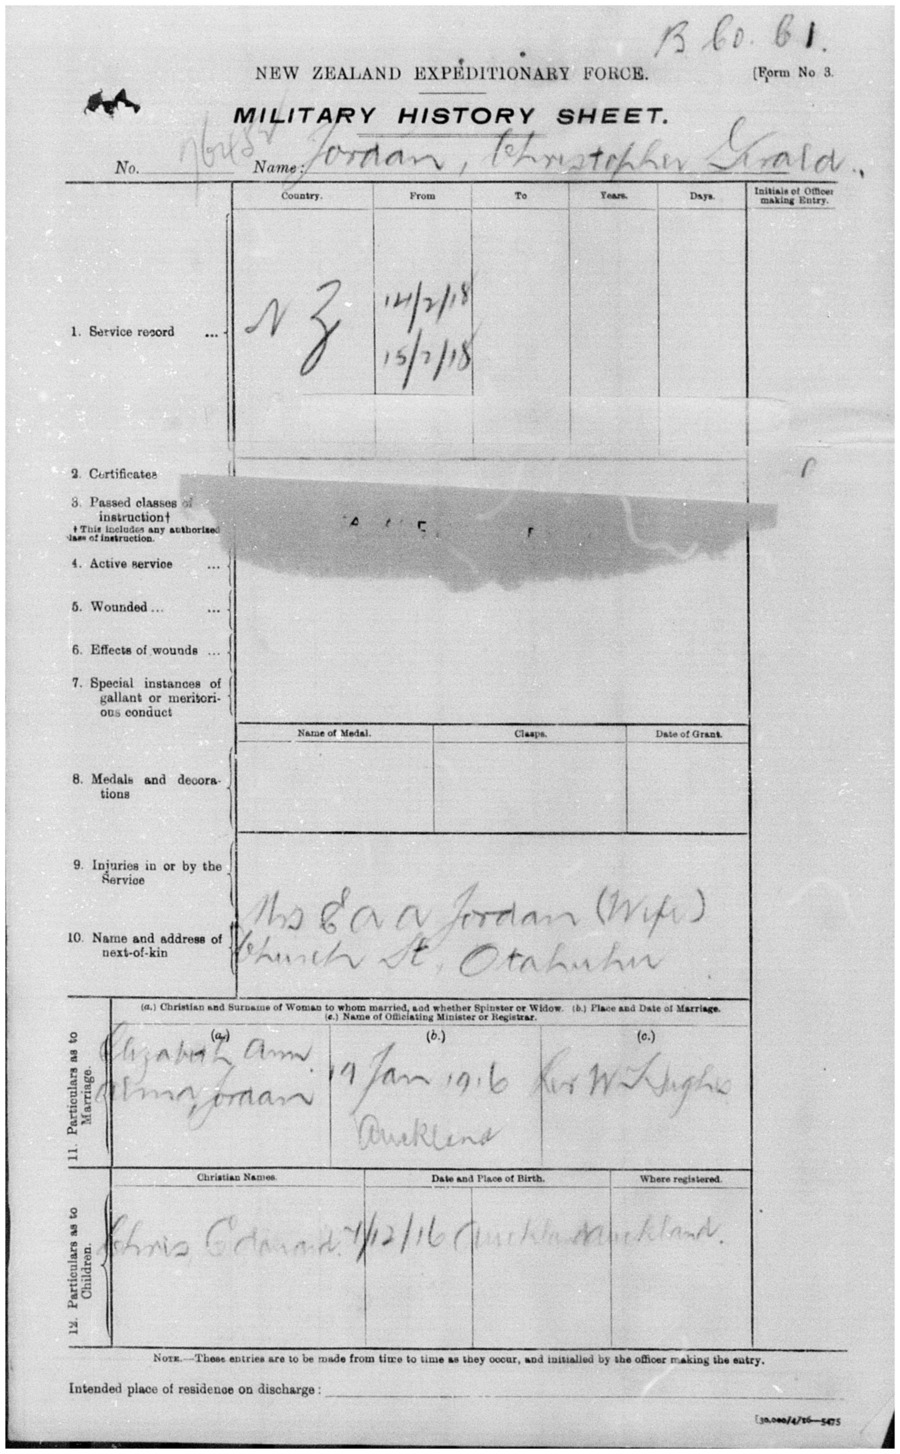 B Co. C 1.
NEW ZEALAND EXPEDITIONARY FORCE.
[Form No 3.
MILITARY HISTORY SHEET.
No. Name: Jordan, Christopher Girald.
Country. From To Years. Days. Initials of Officer
making Entry.
1. Service record ... N Z 14/2/18
15/2/18
2. Certificates
3. Passed classes of
instruction†
† This includes any authorized
class of instruction.
4. Active service ...
5. Wounded ... ...
6. Effects of wounds ...
7. Special instances of
gallant or meritori-
ous conduct
Name of Medal. Clasps. Date of Grant.
8. Medals and decora-
tions
9. Injuries in or by the
Service
10. Name and address of
next-of-kin
Mrs E A A Jordan (Wife)
Church St, Otahuhu
11. Particulars as to
Marriage.
(a.) Christian and Surname of Woman to whom married, and whether Spinster or Widow. (b.) Place and Date of Marriage.
(c.) Name of Officiating Minister or Registrar.
(a.) (b.) (c.)
Elizabeth Ann 19 Jan 1916 Rev W
Alma Jordan
Auckland
12. Particulars as to
Children.
Christian Names. Date and Place of Birth. Where registered.
Chris, Edward. /12/16 Auckland Auckland.
NOTE.—These entries are to be made from time to time as they occur, and initialled by the officer making the entry.
Intended place of residence on discharge:
[30,000/4/16—5475